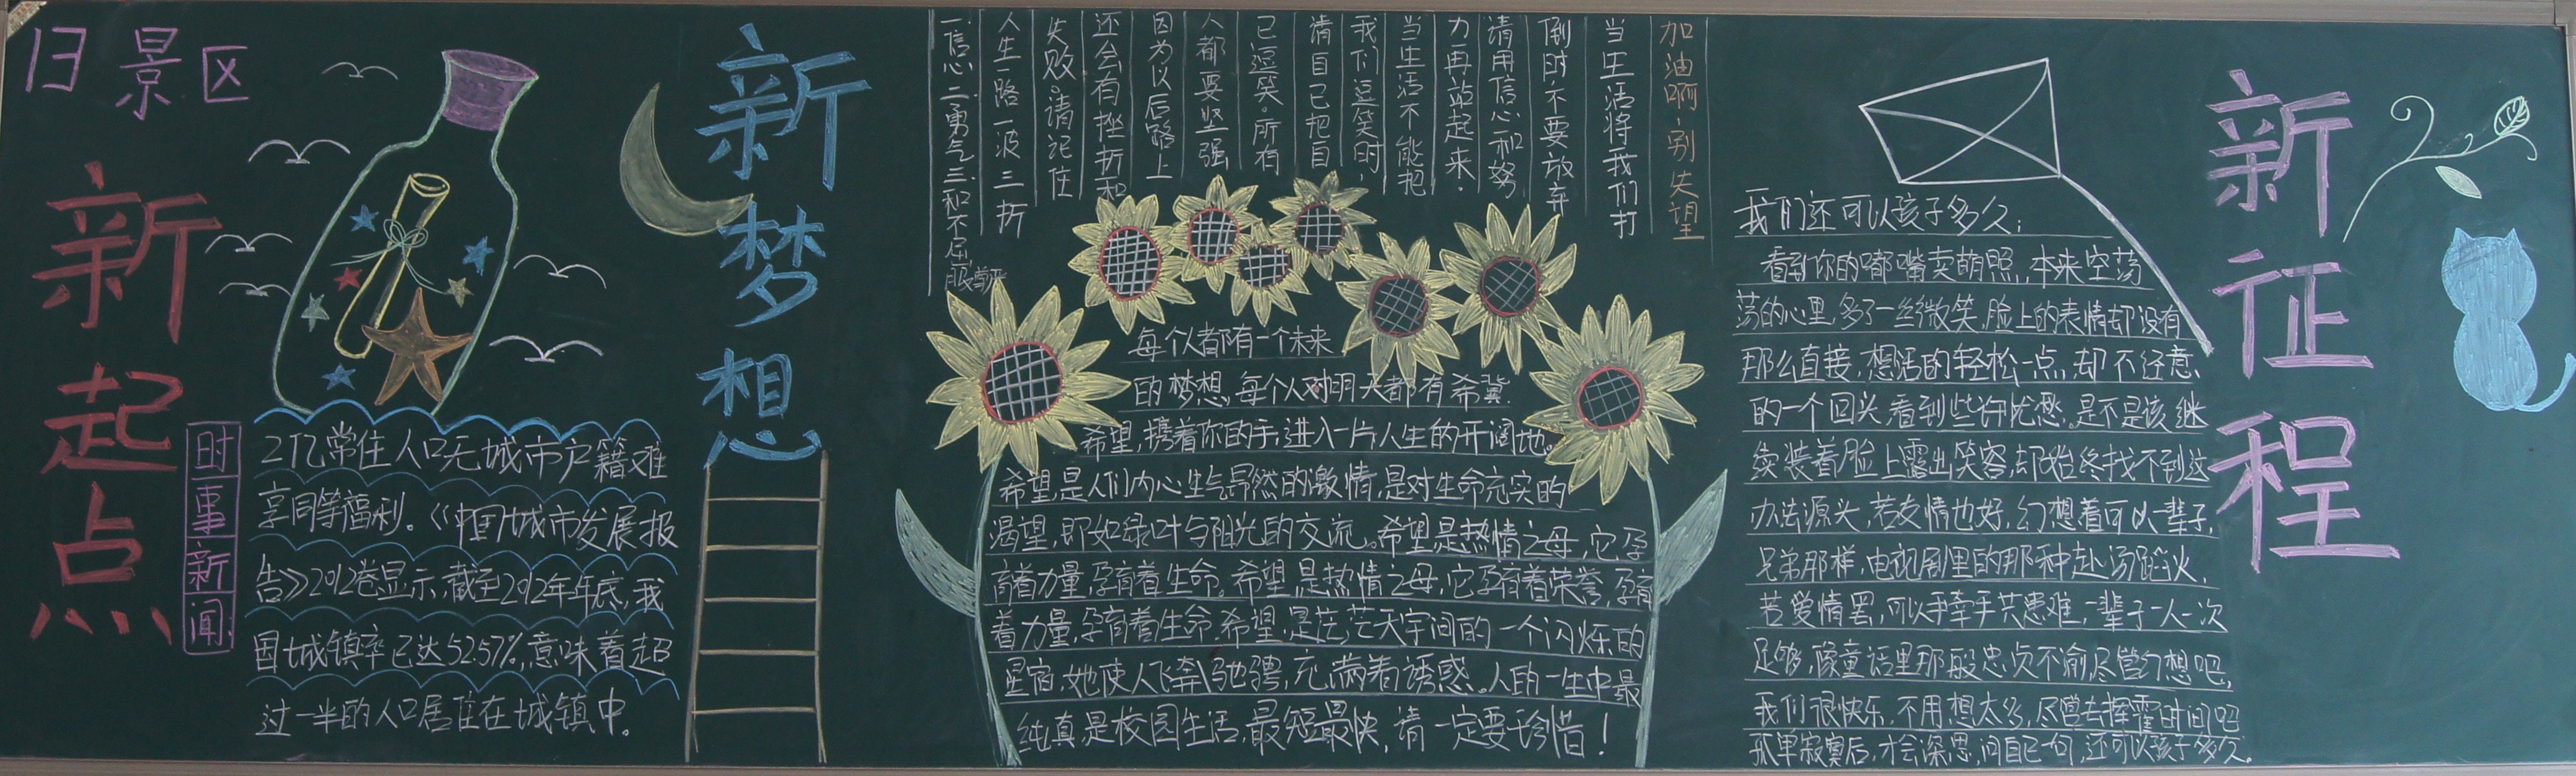 日景区
新起点
时事新闻
2亿常住人口无城市户籍难
享同等福利。《中国城市发展报
告》2012卷显示,截至2012年年底,我
国城镇率已达52.57%,意味着超
过一半的人口居住在城镇中。
新梦想
加油啊,别失望
当生活将我们打
倒时不要放弃
请用信心和努
力再站起来.
当生活不能把
我们逗笑时,
请自己把自
己逗笑。所有
人都要坚强
因为以后路上
还会有挫折和
失败。请记住
人生一路一波三折
一.信心二.勇气三.和不屈
每个人都有一个未来
的梦想,每个人对明天都有希冀.
希望,携着你的手,进入一片人生的开阔地。
希望,是人们内心生气昂然的激情,是对生命充实的
渴望,即如绿叶与阳光的交流。希望是热情之母,它孕
育着力量,孕育着生命。希望,是热情之母,它孕育着荣誉,孕育
着力量,孕育着生命.希望,是茫茫天宇间的一个闪烁的
星宿,她使人飞奔驰骋,充满着诱惑。人的一生中最
纯真,是校园生活,最短最快,请一定要珍惜!
我们还可以孩子多久;
看到你的嘟嘴卖萌照,本来空荡
荡的心里,多了一丝微笑,脸上的表情却没有
那么直接,想活的轻松一点,却不经意
的一个回头,看到些许忧愁。是不是该继
续装着脸上露出笑容,却始终找不到这
办法源头,若友情也好,幻想着可以一辈子,
兄弟那样,电视剧里的那种赴汤蹈火,
若爱情罢,可以手牵手共患难,一辈子一人一次
足够,像童话里那般忠贞不渝,尽管幻想吧,
我们很快乐,不用想太多,尽管去挥霍时间吧
孤单寂寞后,才会深思,问自己一句,还可以孩子多久。
新征程